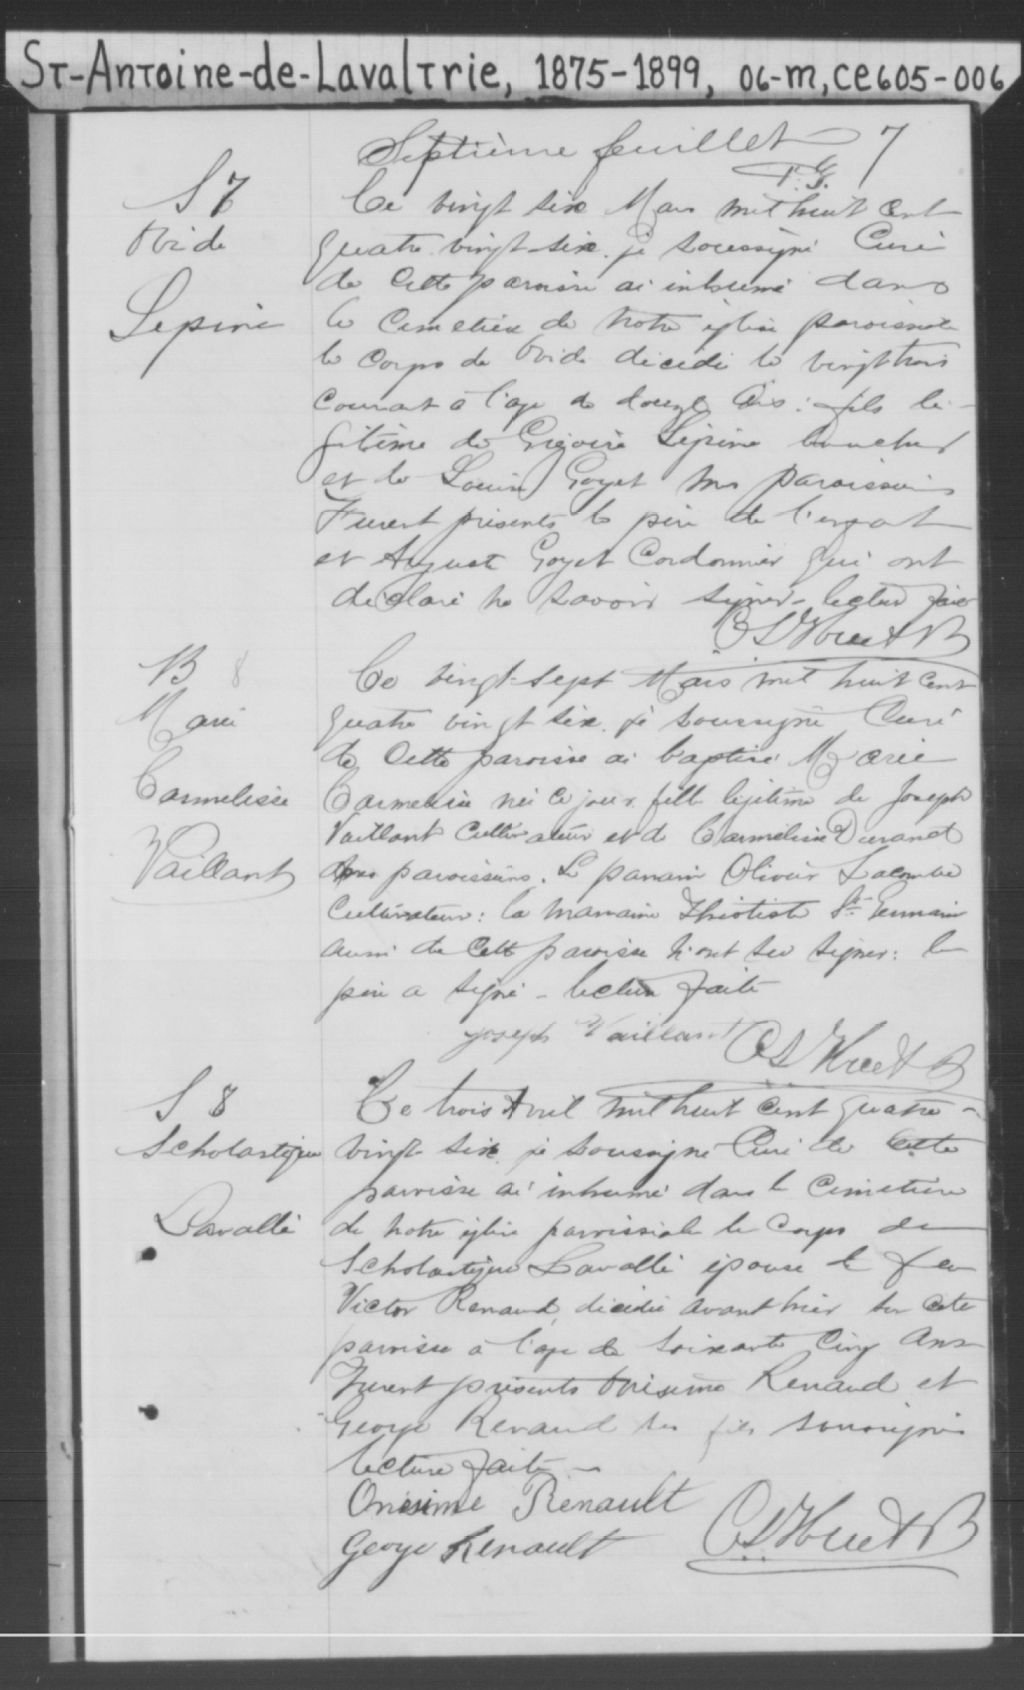 ST-Antoine-de-Lavaltrie, 1875-1899, 06-m, ce605-006
Septième feuillet 7
S 7
Ovide
Lepine
Ce vingt six Mars mil huit cent
quatre vingt six. je soussigné Curé
de cette paroisse ai inhumé dans
le cimetière de notre église paroissiale
le corps de Ovide décédé le vingt trois
courant à l'age de douze ans: fils lé-
gitime de Grégoire Lépine
et de Louise Goyet mes paroissiens
Furent présents le père de l'enfant
et August Goyet Cordonnier qui ont
déclaré ne savoir signer - lecture faite
B 8
Marie
Carmelisse
Vaillant
Ce vingt-sept Mars mil huit cent
quatre vingt six. je soussigné Curé
de cette paroisse ai baptisé Marie
Carmelisse née ce jour. fille légitime de Joseph
Vaillant Cultivateur et de Carmelisse Durand
mes paroissiens. Le parrain Olivier Lacombe
Cultivateur: la marraine Thiotiste St-Germain
aussi de cette paroisse n'ont su signer: le
père a signé - lecture faite
Joseph Vaillant
S 8
Scholastique
Lavallé
Ce trois Avril mil huit cent quatre-
vingt six. je soussigné Curé de cette
paroisse ai inhumé dans le cimetière
de notre église paroissiale le corps de
Scholastique Lavallé épouse de feu
Victor Renaud, décédée avant hier sur cette
paroisse à l'age de soixante cinq ans
Furent présents Onisime Renaud et
George Renaud ses fils soussignés
lecture faite -
Onesime Renault
George Renault